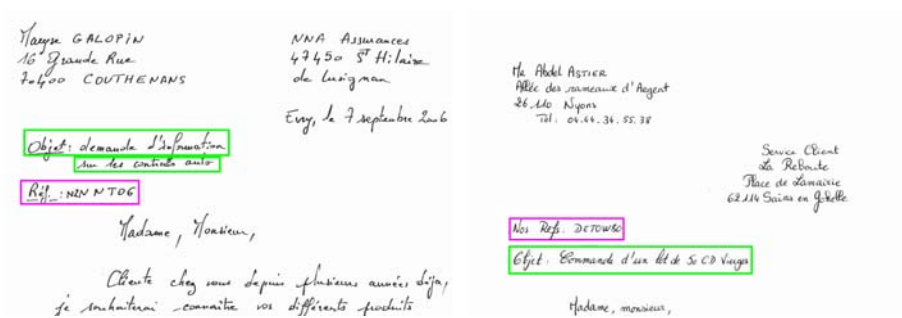 Maryse GALOPIN
16 Grande Rue
70400 COUTHENANS
NNA Assurances
47450 ST Hilaire
de Lusignan
Evry, le 7 septembre 2006
Objet : demande d'information
sur les contrats auto
Réf. : N2N NTO6
Madame, Monsieur,
Cliente chez vous depuis plusieurs années déjà,
je souhaiterai connaître vos différents produits
Mr Abdel ASTIER
Allée des rameaux d'Argent
26110 Nyons
Tél : 04.44.34.55.38
Service Client
La Redoute
Place de Lamairie
62114 Sains en Gohelle
Nos Refs. DETOW60
Objet : Commande d'un lot de 50 CD Vierges
Madame, monsieur,